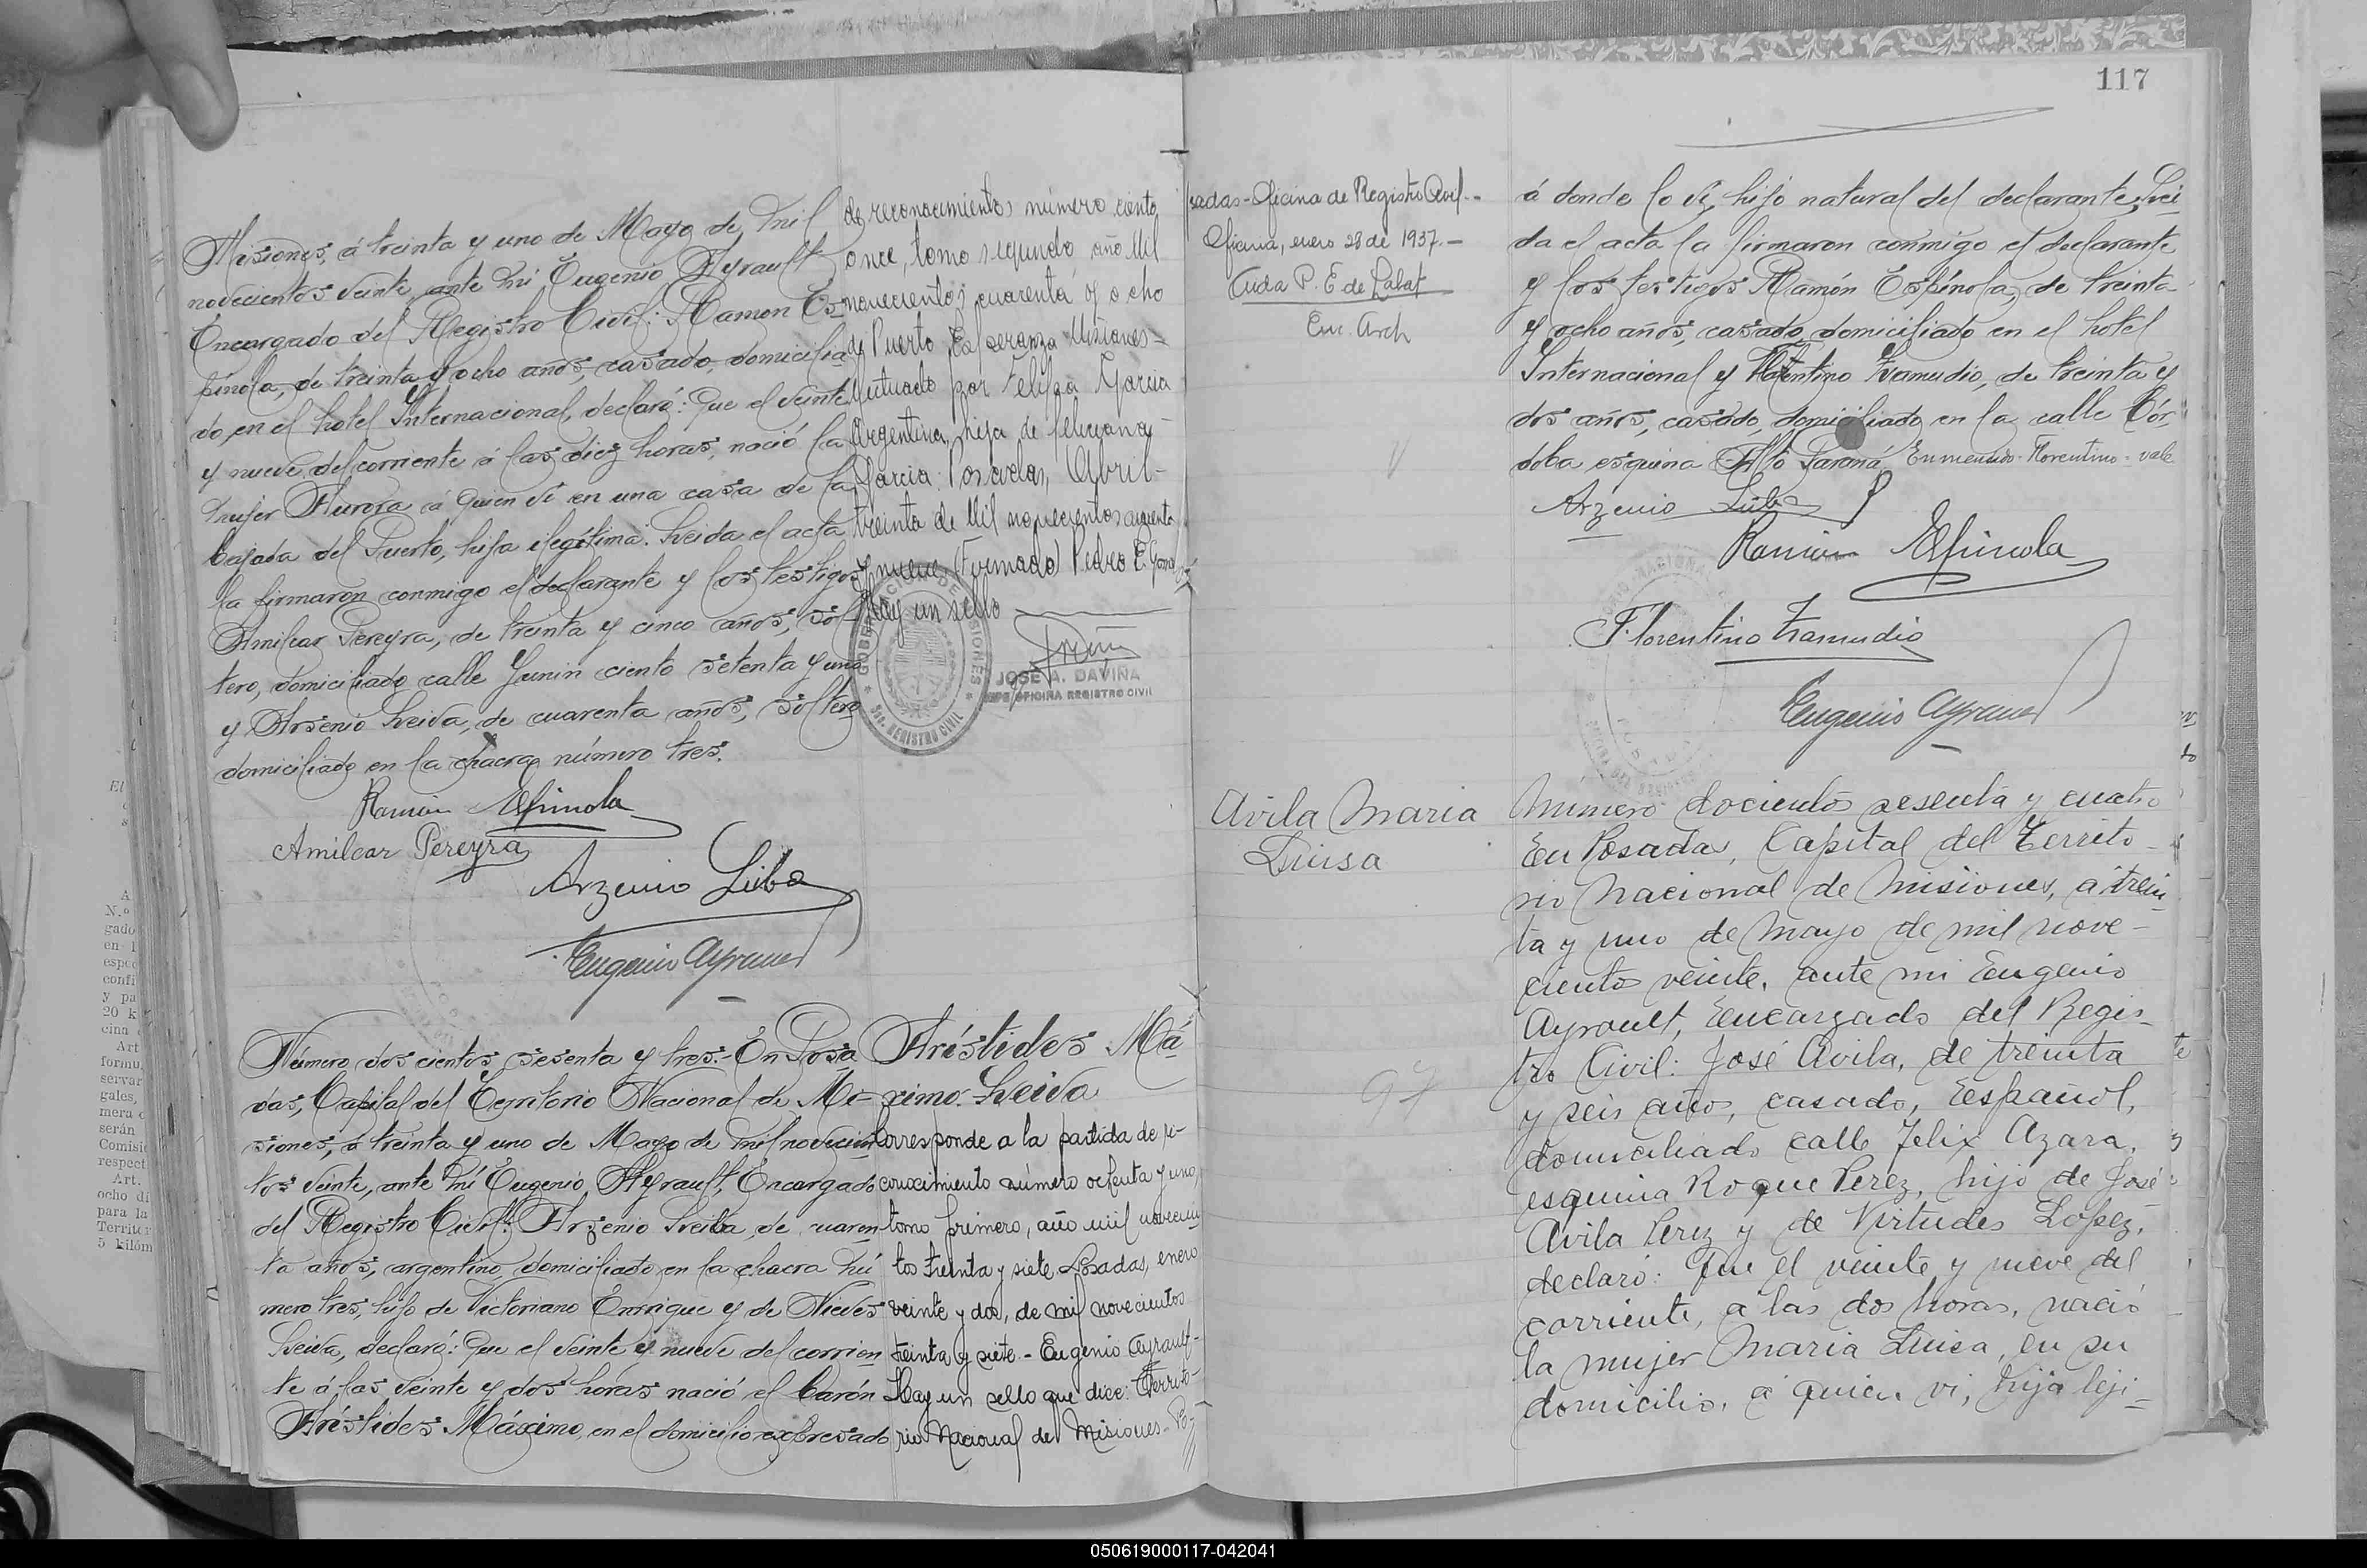 Misiones, á treinta y uno de Mayo de mil
novecientos veinte, ante mí Eugenio Ayrault
Encargado del Registro Civil: Ramon Es-
pínola, de treinta y ocho años, casado, domicilia
do en el hotel Internacional, declaró: Que el veinte
y nueve del corriente á las diez horas, nació la
mujer Aurora á quien ví en una casa de la
bajada del Puerto, hija ilegítima. Leida el acta
la firmaron conmigo el declarante y los testigos
Amilcar Pereyra, de treinta y cinco años, sol-
tero, domiciliado calle Junin ciento setenta y uno
y Arsenio Leiva, de cuarenta años, soltero
domiciliado en la chacra número tres.
Ramón Espinola
Amilcar Pereyra
Arzenio Leiba
Eugenio Ayrault
de reconocimientos número ciento
once, tomo segundo año Mil
novecientos cuarenta y ocho
de Puerto Esperanza Misiones-
efectuado por Felipa Garcia
Argentina, hija de Feliciana
Garcia. Posadas, Abril-
treinta de Mil novecientos cuarenta
y nueve (Firmado) Pedro E.
Hay un sello
GOBERNACION DE MISIONES
REGISTRO CIVIL
JOSE A. DAVIÑA
JEFE OFICINA REGISTRO CIVIL
Número dos cientos sesenta y tres.- En Posa
das, Capital del Territorio Nacional de Mi-
siones, á treinta y uno de Mayo de mil novecien
tos veinte, ante mí Eugenio Ayrault, Encargado
del Registro Civil: Arzenio Leiba, de cuaren
ta años, argentino, domiciliado en la chacra nú
mero tres, hijo de Victoriano Enrrique y de Nieves
Leiva, declaró: Que el veinte y nueve del corrien
te á las veinte y dos horas nació el barón
Arístides Máximo, en el domicilio expresado
Arístides Má-
ximo Leiva
Corresponde a la partida de re-
conocimiento número ochenta y uno,
tomo primero, año mil novecien
tos treinta y siete. Posadas, enero
veinte y dos, de mil novecientos
treinta y siete.- Eugenio Ayrault-
Hay un sello que dice: Territo-
rio Nacional de Misiones - Po-
117
sadas - Oficina de Registro Civil.-
Oficina, enero 28 de 1937.-
Aida P. E. de Labat
Enc. Arch
á donde lo ví, hijo natural del declarante. Lei-
da el acta la firmaron conmigo el declarante
y los testigos Ramón Espínola, de treinta
y ocho años, casado, domiciliado en el hotel
Internacional y Florentino Zamudio, de treinta y
dos años, casado, domiciliado en la calle Cór,
doba esquina Alto Paraná. Enmendado-Florentino-vale
Arzenio Leiba
Ramón Espinola
Florentino Zamudio
Eugenio Ayrault
Avila Maria
Luisa
97
Número docientos sesenta y cuatro
En Posadas, Capital del Territo-
rio Nacional de Misiones, a trein
ta y uno de Mayo de mil nove-
cientos veinte, ante mi Eugenio
Ayrault, Encargado del Regis-
tro Civil: José Avila, de treinta
y seis años, casado, Español,
domiciliado calle Felix Azara,
esquina Roque Perez, hijo de José
Avila Perez y de Virtudes Lopez,
declaró: Que el veinte y nueve del
corriente, a las dos horas, nació
la mujer Maria Luisa, en su
domicilio, a quien vi, hija leji-
050619000117-042041